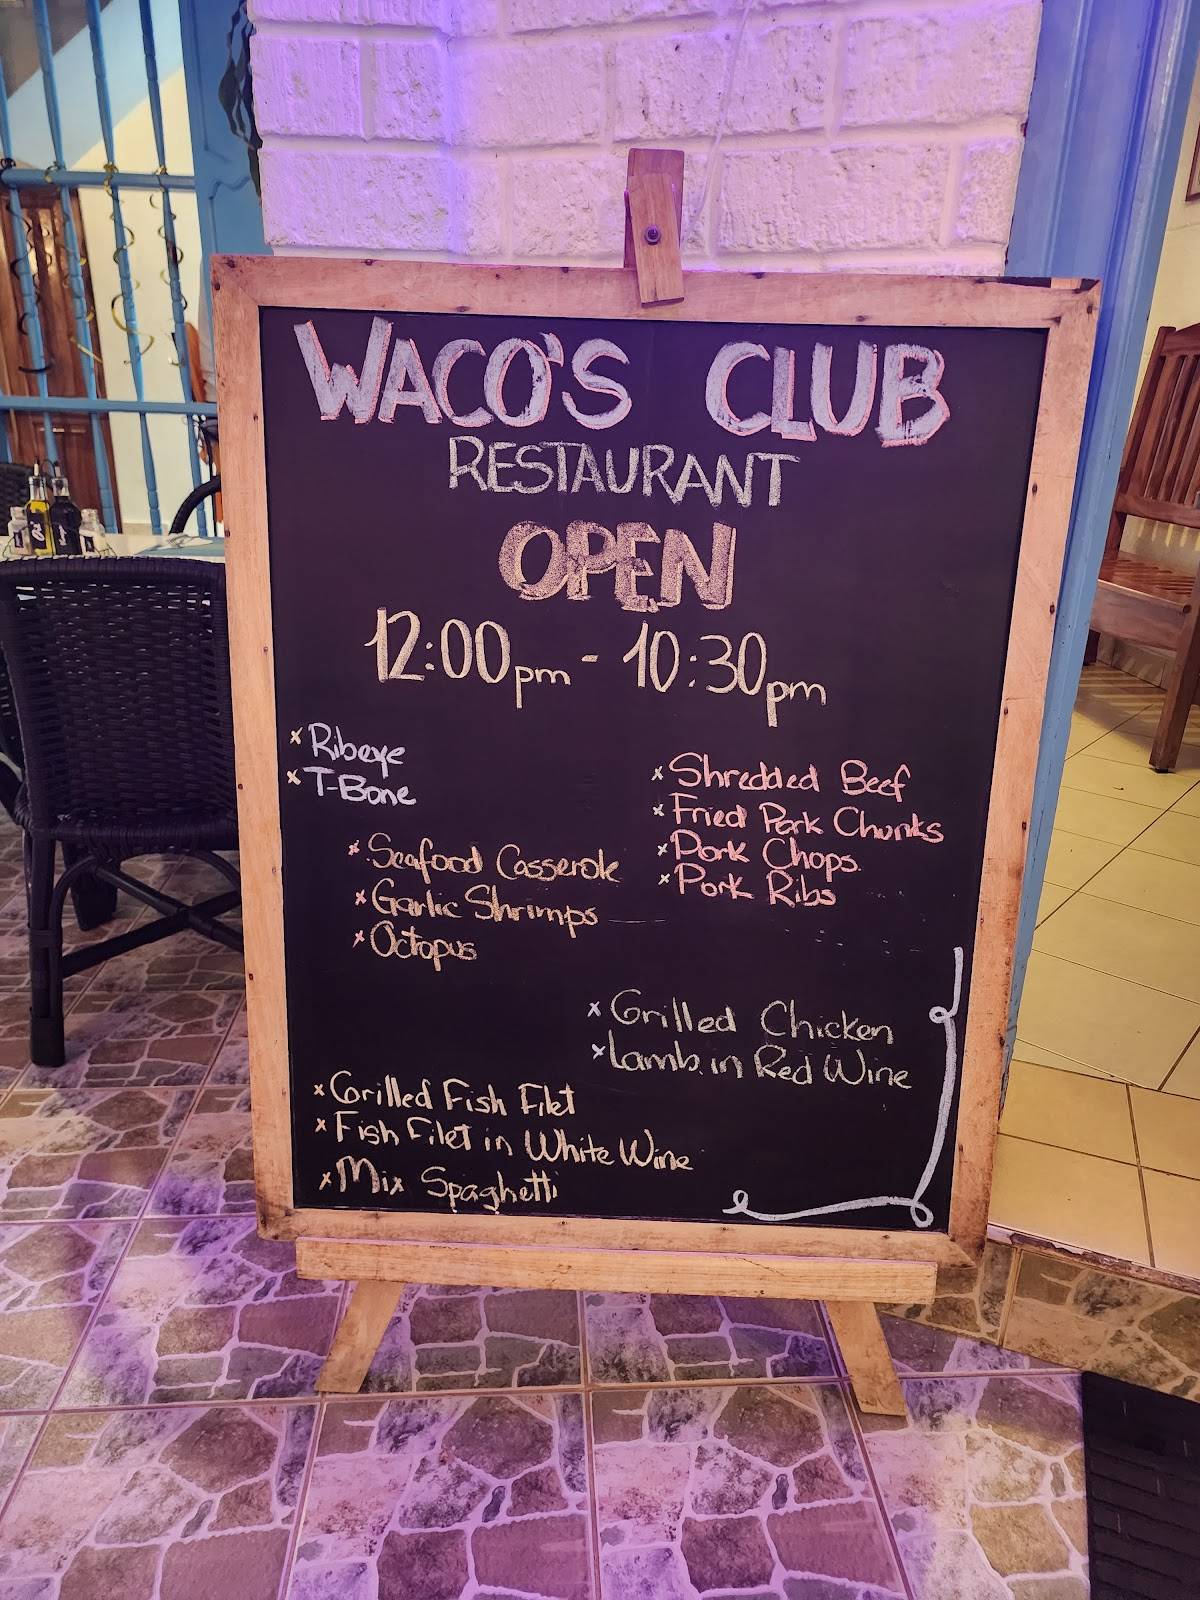 WACO'S CLUB
RESTAURANT
OPEN
12:00pm - 10:30pm
x Ribeye
x T-Bone
x Shredded Beef
x Fried Pork Chunks
x Pork Chops.
x Pork Ribs
x Seafood Casserole
x Garlic Shrimps
x Octopus
x Grilled Chicken
x Lamb in Red Wine
x Grilled Fish Filet
x Fish Filet in White Wine
x Mix Spaghetti
Oil